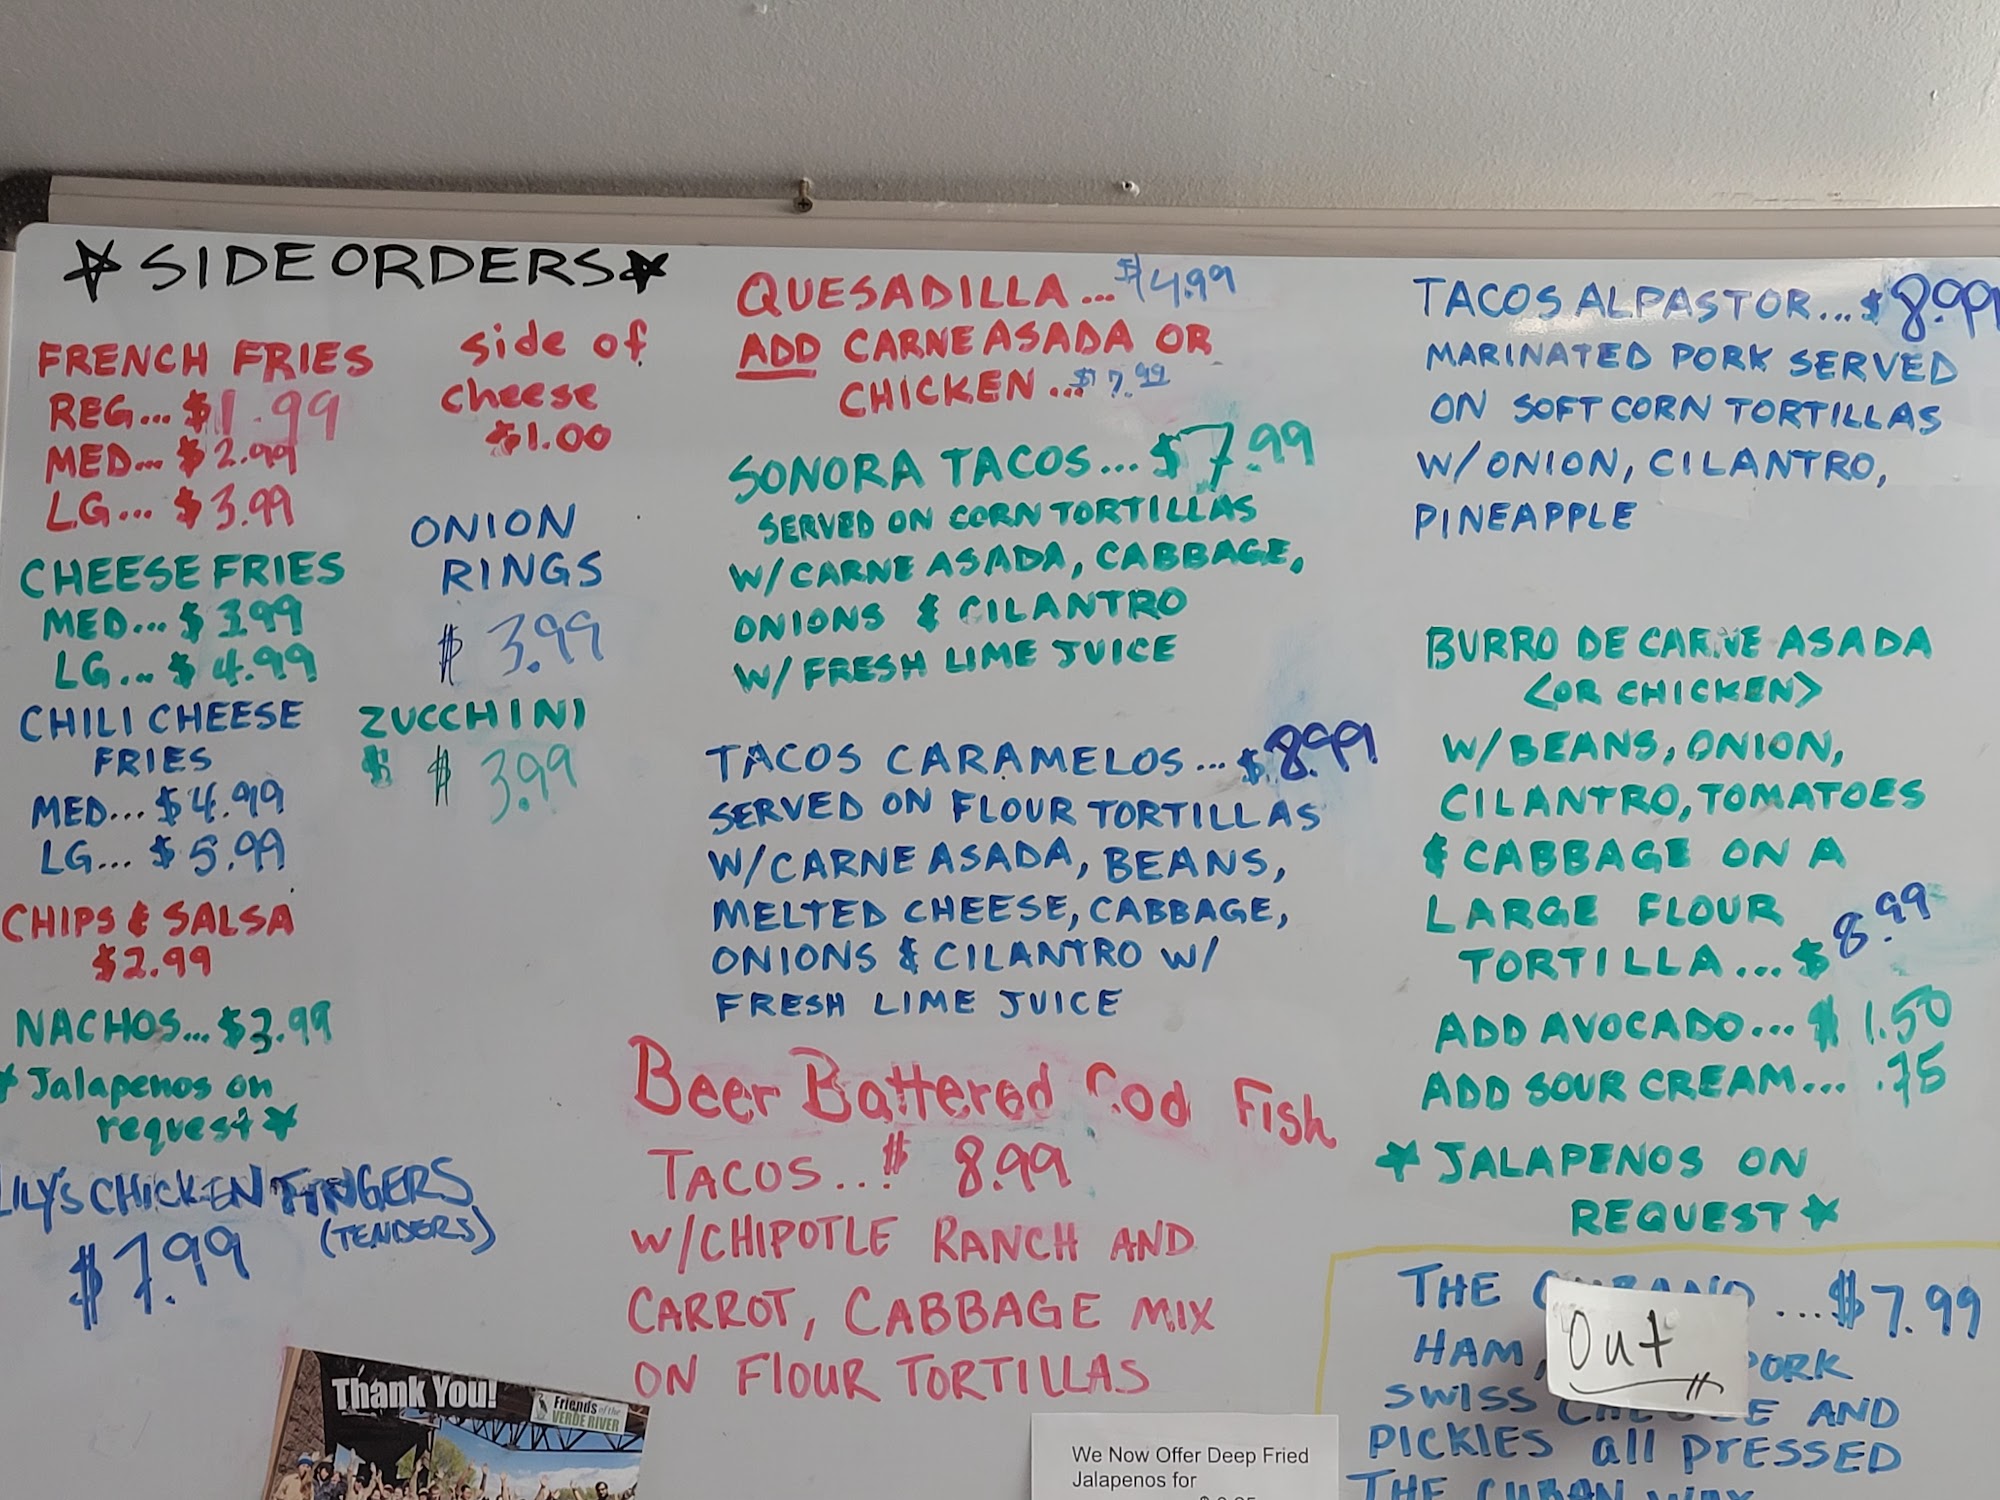 SIDE ORDERS
FRENCH FRIES
REG... $1.99
MED... $2.99
LG... $3.99
side of
cheese
$1.00
CHEESE FRIES
MED... $3.99
LG... $4.99
ONION
RINGS
$3.99
CHILI CHEESE
FRIES
MED... $4.99
LG... $5.99
ZUCCHINI
$ $3.99
CHIPS & SALSA
$2.99
NACHOS... $3.99
Jalapenos on
request
LILY'S CHICKEN FINGERS
(TENDERS)
$7.99
QUESADILLA... $4.99
ADD CARNE ASADA OR
CHICKEN... $7.99
SONORA TACOS... $7.99
SERVED ON CORN TORTILLAS
W/CARNE ASADA, CABBAGE,
ONIONS & CILANTRO
W/ FRESH LIME JUICE
TACOS CARAMELOS... $8.99
SERVED ON FLOUR TORTILLAS
W/CARNE ASADA, BEANS,
MELTED CHEESE, CABBAGE,
ONIONS & CILANTRO W/
FRESH LIME JUICE
Beer Battered Cod Fish
TACOS... $8.99
W/CHIPOTLE RANCH AND
CARROT, CABBAGE MIX
ON FLOUR TORTILLAS
TACOS ALPASTOR... $8.99
MARINATED PORK SERVED
ON SOFT CORN TORTILLAS
W/ONION, CILANTRO,
PINEAPPLE
BURRO DE CARNE ASADA
<OR CHICKEN>
W/BEANS, ONION,
CILANTRO, TOMATOES
& CABBAGE ON A
LARGE FLOUR
TORTILLA... $8.99
ADD AVOCADO... $1.50
ADD SOUR CREAM... .75
JALAPENOS ON
REQUEST
THE CUBANO ... $7.99
HAM, PORK
SWISS CHEESE AND
PICKLES all PRESSED
THE CUBAN WAY
Out
Thank You!
Friends of the
VERDE RIVER
We Now Offer Deep Fried
Jalapenos for